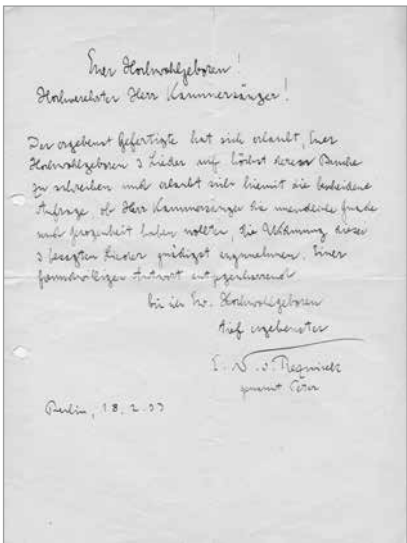 Euer Hochwohlgeboren!
Hochverehrter Herr Kammersänger!
Der ergebenst Gefertigte hat sich erlaubt, Euer
Hochwohlgeboren 3 Lieder auf höchst deren
zu schreiben und erlaubt sich hiemit die bescheidene
Anfrage, ob Herr Kammersänger die unendliche Gnade
und haben wollten, die Widmung dieser
3 besagten Lieder gnädigst anzunehmen. Einer
Antwort entgegenharrend
bin ich Ew. Hochwohlgeboren
ergebenster
E. N. v. Reznicek
genannt Peter
Berlin, 18.2.33